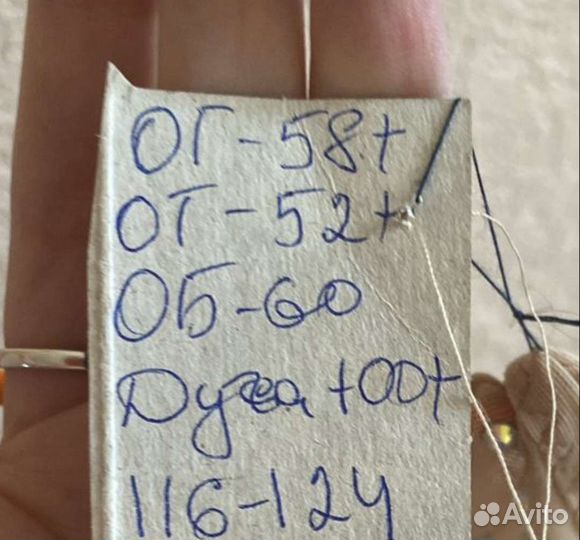 ОГ-58+
ОТ-52+
ОБ-60
Дуга 100+
116-124
Avito